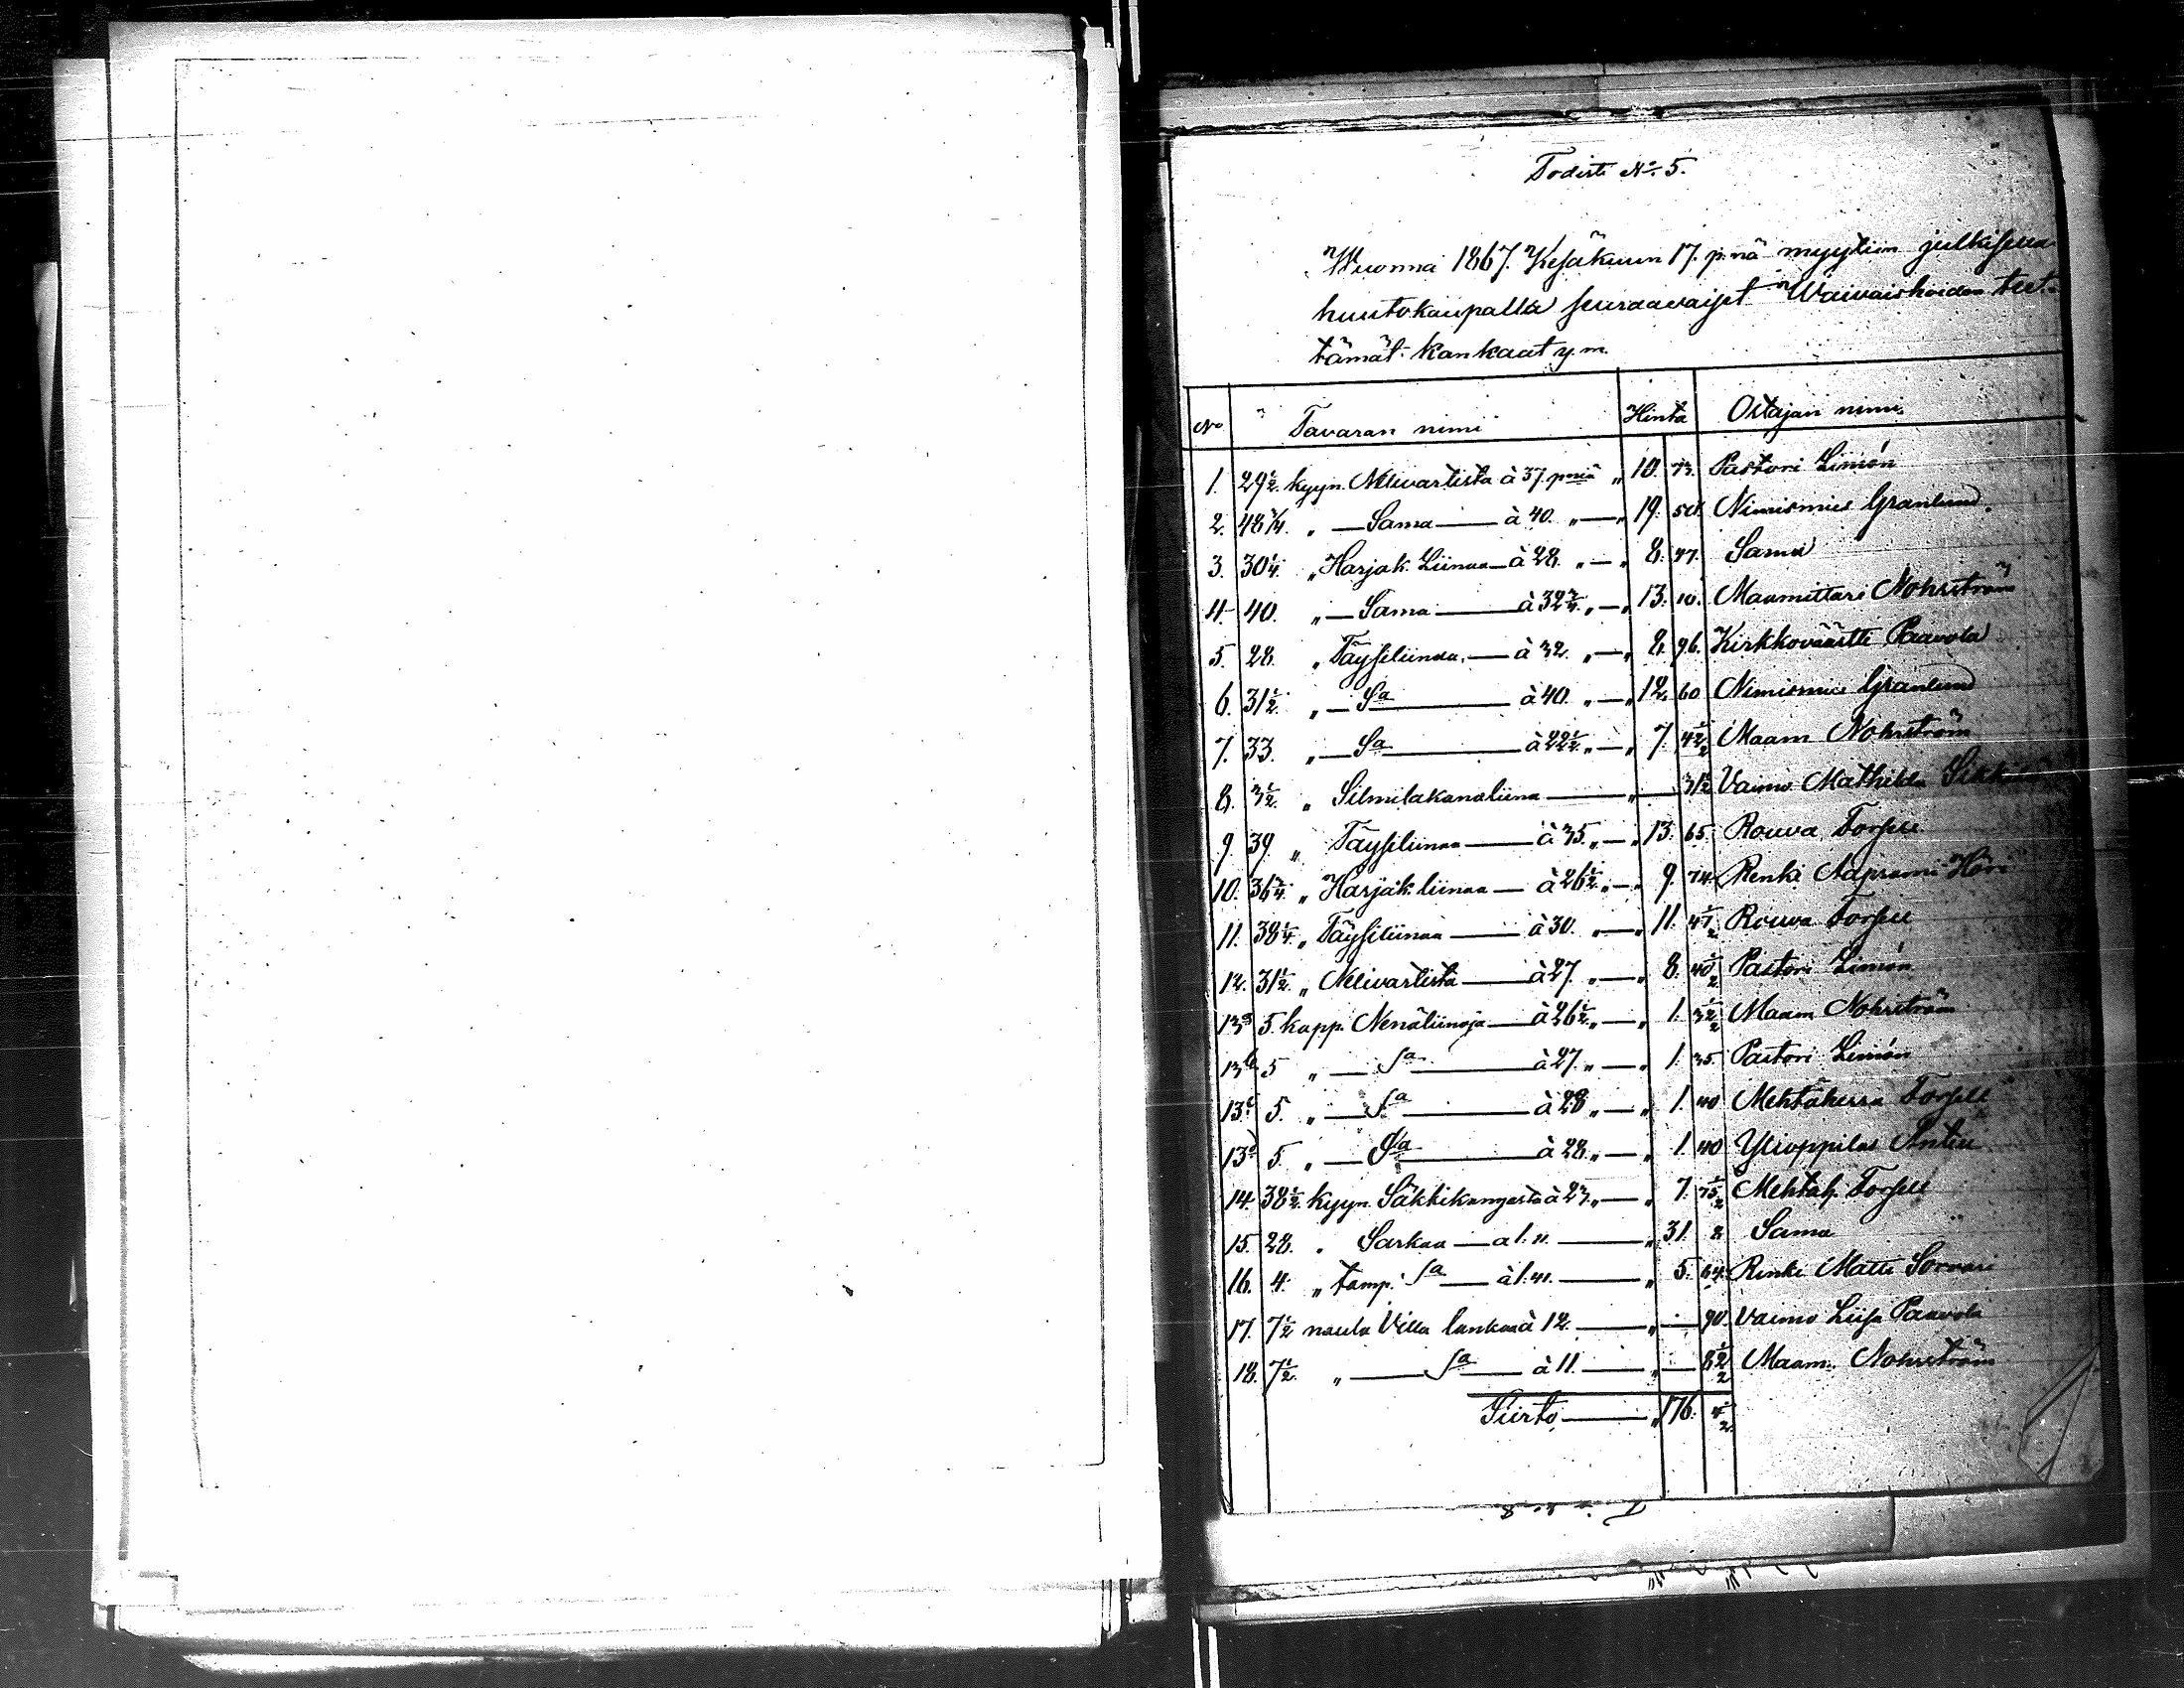 Todiste No 5.
Wuonna 1867 Kesäkuun 17 p:nä myytiin julkisella
huutokaupalla seuraavaiset Waivaishoidon teet-
tämät kankaat y.m.
No Tavaran nimi Hinta Ostajan nimi
1. 29 1/2 kyyn. Nelivartista à 37 pniä „ 10. 73. Pastori Limón
2. 48 3/4 „ — Sama — à 40. „ — „ 19. 50. Nimismies Granlund.
3. 30 1/4 „ Harjak. Liinaa — à 28. „ — „ 8. 47. Sama
4. 40. „ — Sama — à 32 3/4 „ — „ 13. 10. Maamittari Nohrström
5. 28. „ Täysiliinaa — à 32. „ — „ 8. 96. Kirkkoväärtti Paavola
6. 31 1/2 „ — Sa — à 40. „ — „ 12. 60 Nimismies Granlund
7. 33. „ — Sa — à 22 1/2 „ — „ 7. 42 1/2 Maam Nohrström
8. 3 1/2 „ — „ — 31 1/2 Vaimo Mathilda
9. 39 „ Täysiliinaa — à 35. „ — „ 13. 65. Rouva Forsell
10. 36 3/4 „ Harjak. liinaa — à 26 1/2 „ — „ 9. 74 Renki
11. 38 1/4 „ Täysiliinaa — à 30. „ — „ 11. 47 1/2 Rouva Forsell
12. 31 1/2 „ Nelivartista — à 27. „ — „ 8. 50 1/2 Pastori Limón
13a 5. kapp. Nenäliinoja — à 26 1/2 „ — „ 1. 32 1/2 Maam Nohrström
13b 5 „ — Sa — à 27. „ — „ 1. 35. Pastori Limón
13c 5. „ — Sa — à 28 „ — „ 1. 40 Mehtäherra Forsell
13d 5. „ — Sa — à 28. „ — „ 1. 40 Ylioppilas
14. 38 1/2 kyyn. Säkkikangasta à „ — „ 7. Mehtäh. Forsell
15. 28. „ Sarkaa — à 1. 11. — „ 31. 8 Sama
16. 4. „ tamp. Sa — à 1. 41. — „ 5. 64. Renki Matti Sorvari
17. 7 1/2 naula Villa lankaa à 12. — „ — 90. Vaimo Liisa Paavola
18. 7 1/2 „ — Sa — à 11. — „ — 82 1/2 Maam. Nohrström
Siirto — „ 176.